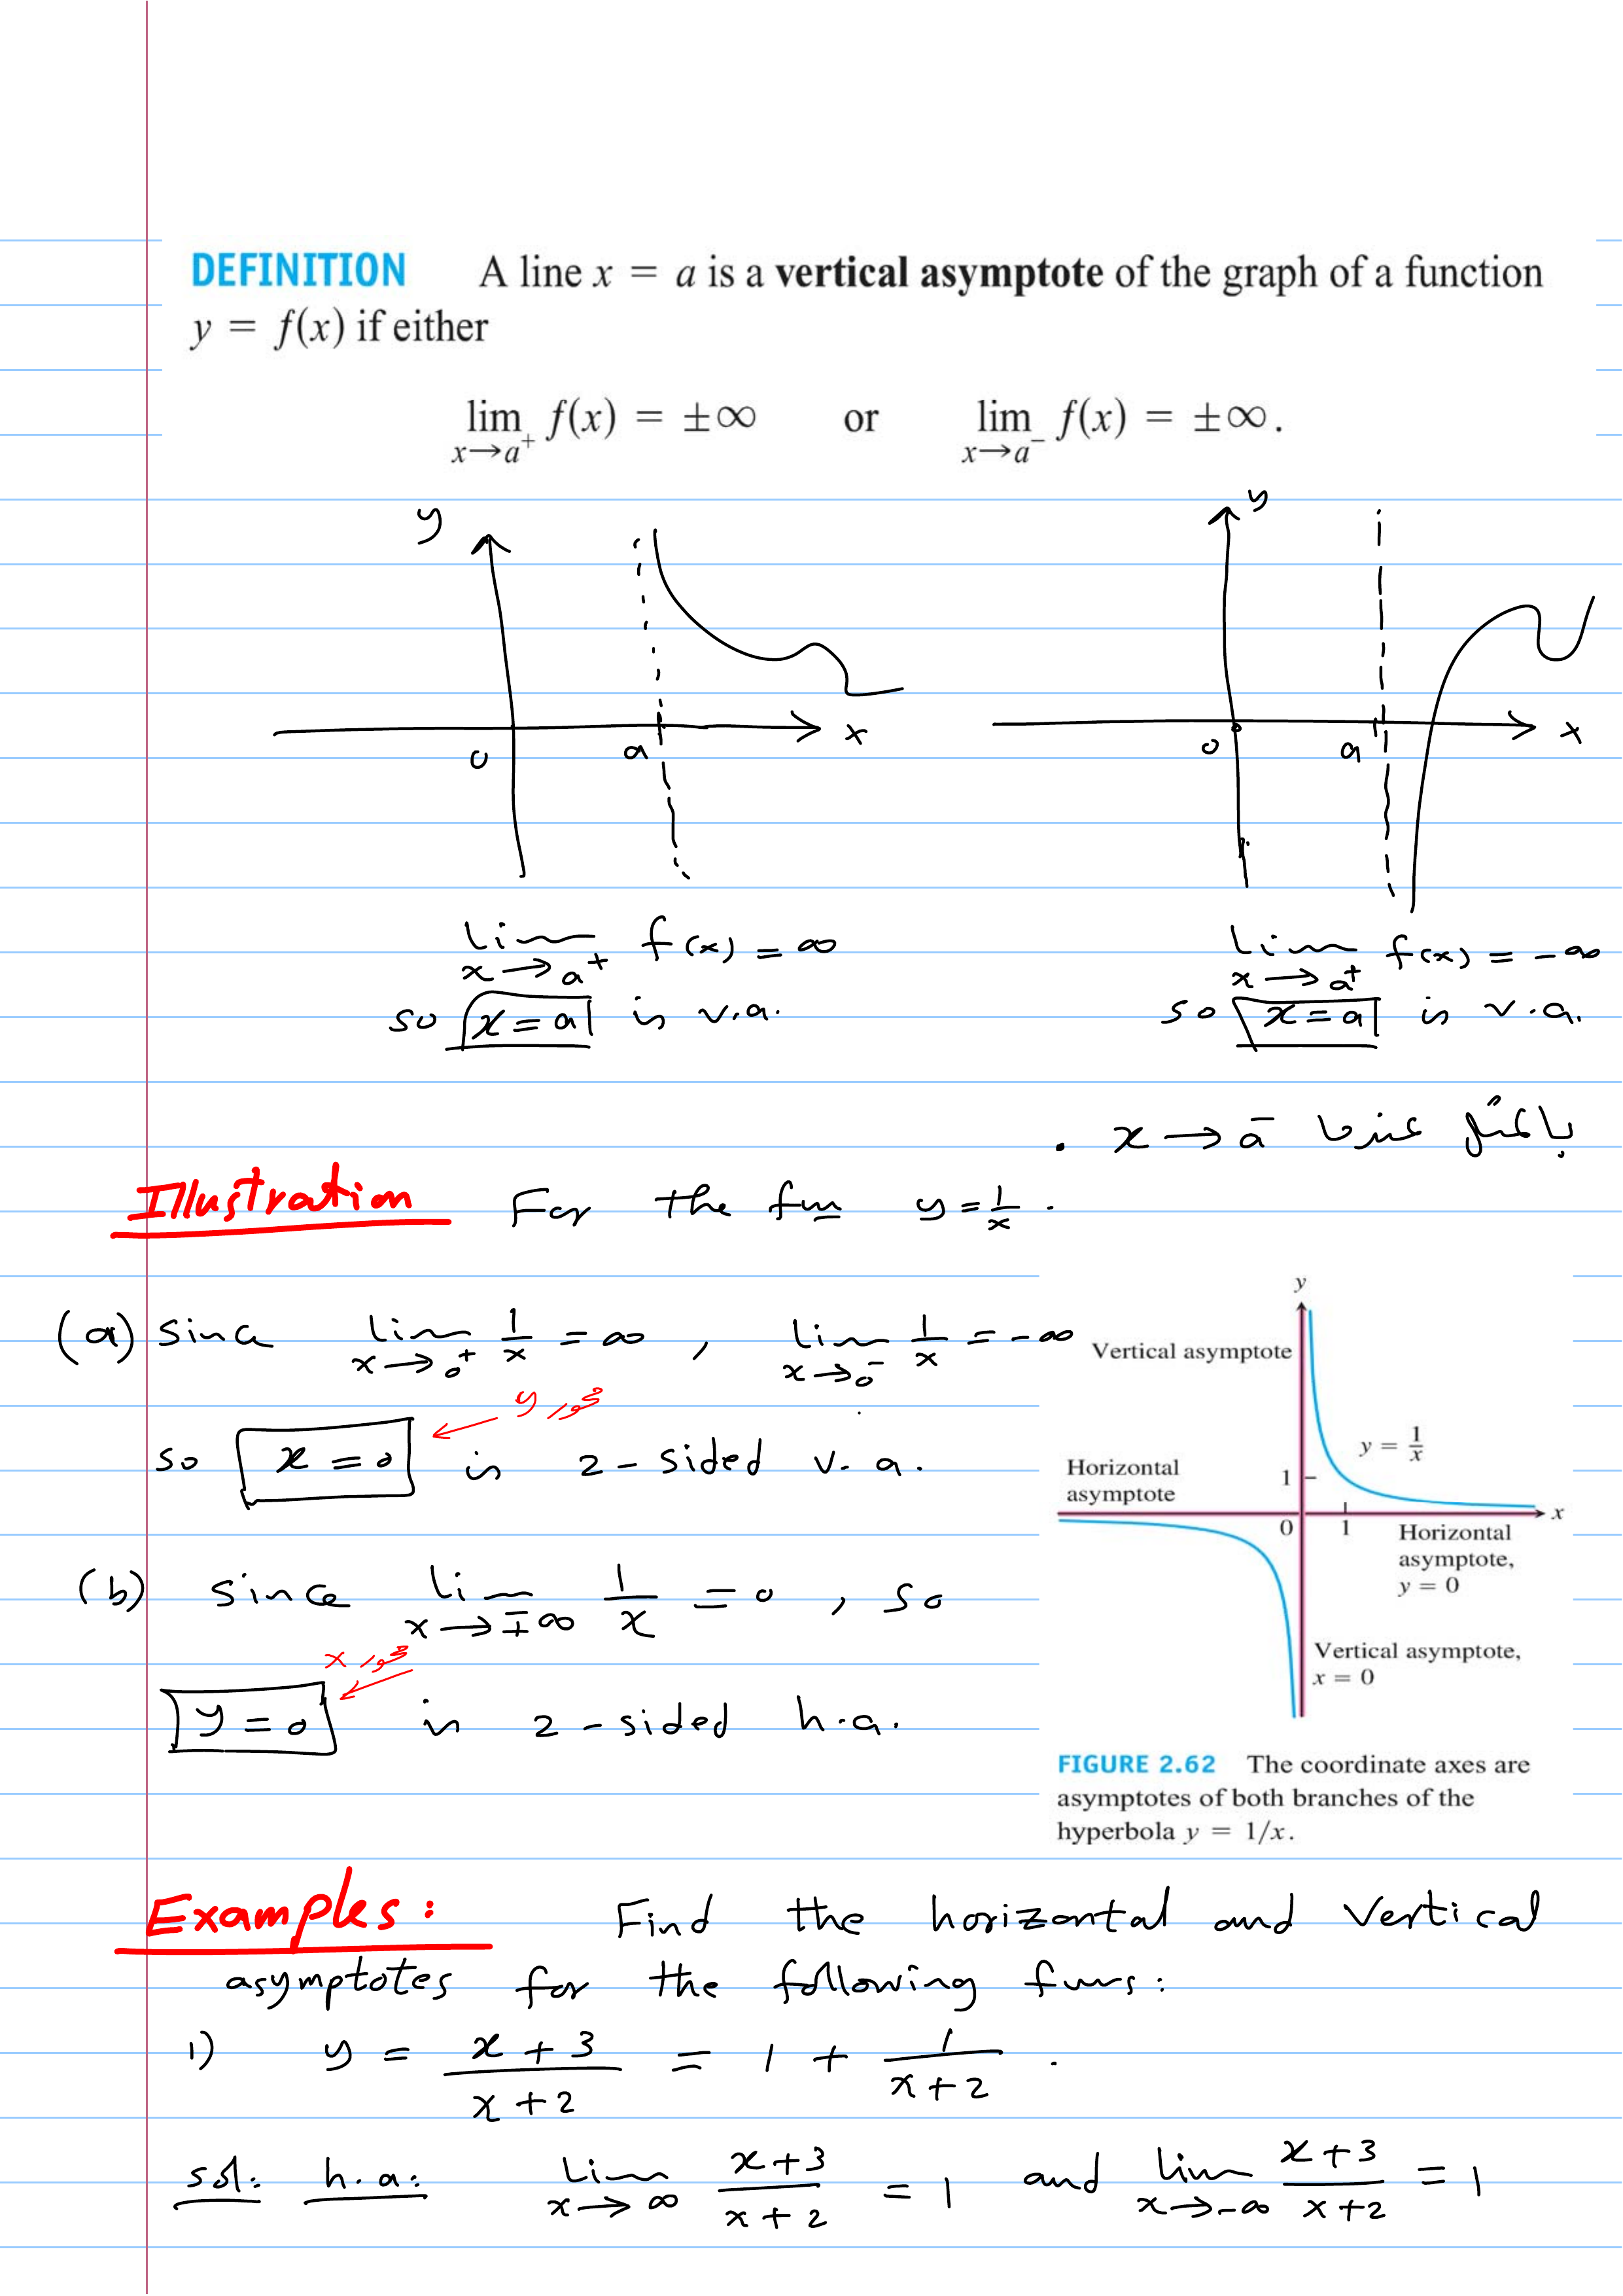 DEFINITION A line x = a is a vertical asymptote of the graph of a function
y = f(x) if either
lim x→a⁺ f(x) = ±∞ or lim x→a⁻ f(x) = ±∞.
y
x
0
a
y
x
0
a
Lim x→a⁺ f(x) = ∞
so x = a is v.a.
Lim x→a⁺ f(x) = -∞
so x = a is v.a.
بالمثل عندما x → a⁻ .
Illustration For the fun y = 1/x .
(a) since Lim x→0⁺ 1/x = ∞ , Lim x→0⁻ 1/x = -∞
محور y
so x = 0 is 2-sided v.a.
(b) since Li x→∓∞ 1/x = 0 , so
محور x
y = 0 is 2-sided h.a.
y
Vertical asymptote
y = 1/x
Horizontal
asymptote
1
0
1
x
Horizontal
asymptote,
y = 0
Vertical asymptote,
x = 0
FIGURE 2.62 The coordinate axes are
asymptotes of both branches of the
hyperbola y = 1/x.
Examples: Find the horizontal and vertical
asymptotes for the following funs:
1) y = (x + 3)/(x + 2) = 1 + 1/(x + 2) .
sol: h.a: Lim x→∞ (x+3)/(x+2) = 1 and Lim x→-∞ (x+3)/(x+2) = 1